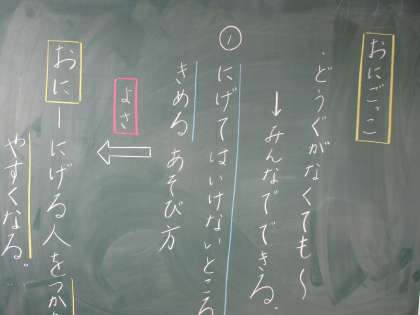 おにごっこ
・どうぐがなくても〜
→みんなでできる。
①
にげてはいけないところ
きめるあそび方
よさ
おにーにげる人をつか
やすくなる。